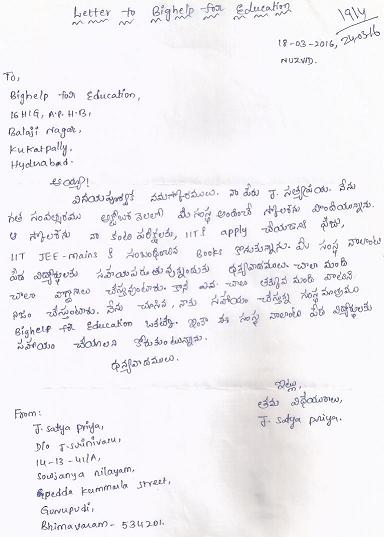 Letter to Bighelp for Education
1914
24-03-16
18-03-2016,
NUZVD.
To,
Bighelp for Education,
16HIG, A.P.H.B,
Balaji Nagar,
Kukatpally,
Hyderabad.
అయ్యా!
వినయపూర్వక నమస్కారములు. నా పేరు J. సత్యప్రియ. నేను
గత సంవత్సరము అక్టోబర్ నెలలో మీ సంస్థ అందించే స్కాలర్‌షిప్ పొందియున్నాను.
ఆ స్కాలర్‌షిప్ నా కంటి పరీక్షలకు, IIT కి apply చేయడానికి ఫీజు,
IIT JEE-mains కి సంబంధించిన Books కొనుకున్నాను. మీ సంస్థ నాలాంటి
పేద విద్యార్థులకు సహాయపడుతున్నందుకు ధన్యవాదములు. చాలా మంది
చాలా వాగ్దానాలు చేస్తూవుంటారు. కానీ చాలా తక్కువ మంది వాటిని
నిజం చేస్తుంటారు. నేను చూసిన, నాకు సహాయం చేస్తున్న సంస్థ మాత్రము
Bighelp for Education ఒకటే. ఇలాగే ఈ సంస్థ నాలాంటి పేద విద్యార్థులకు
సహాయం చేయాలని కోరుకుంటున్నాను.
ధన్యవాదములు.
ఇట్లు
తమ విధేయురాలు,
J. satya priya.
From:
J. satya priya,
D/o J. srinivasu,
14-13-41/A,
Sowjanya nilayam,
pedda kummarla street,
Gunupudi,
Bhimavaram - 534201.